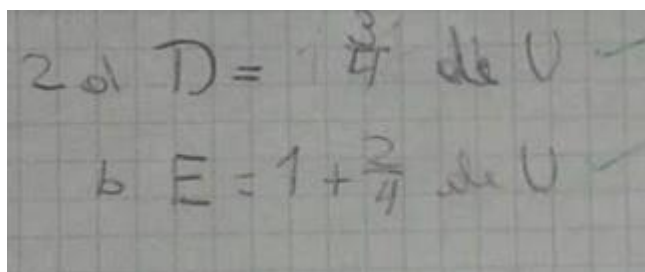 2 a) D = 3/4 de U
b E = 1 + 2/4 de U